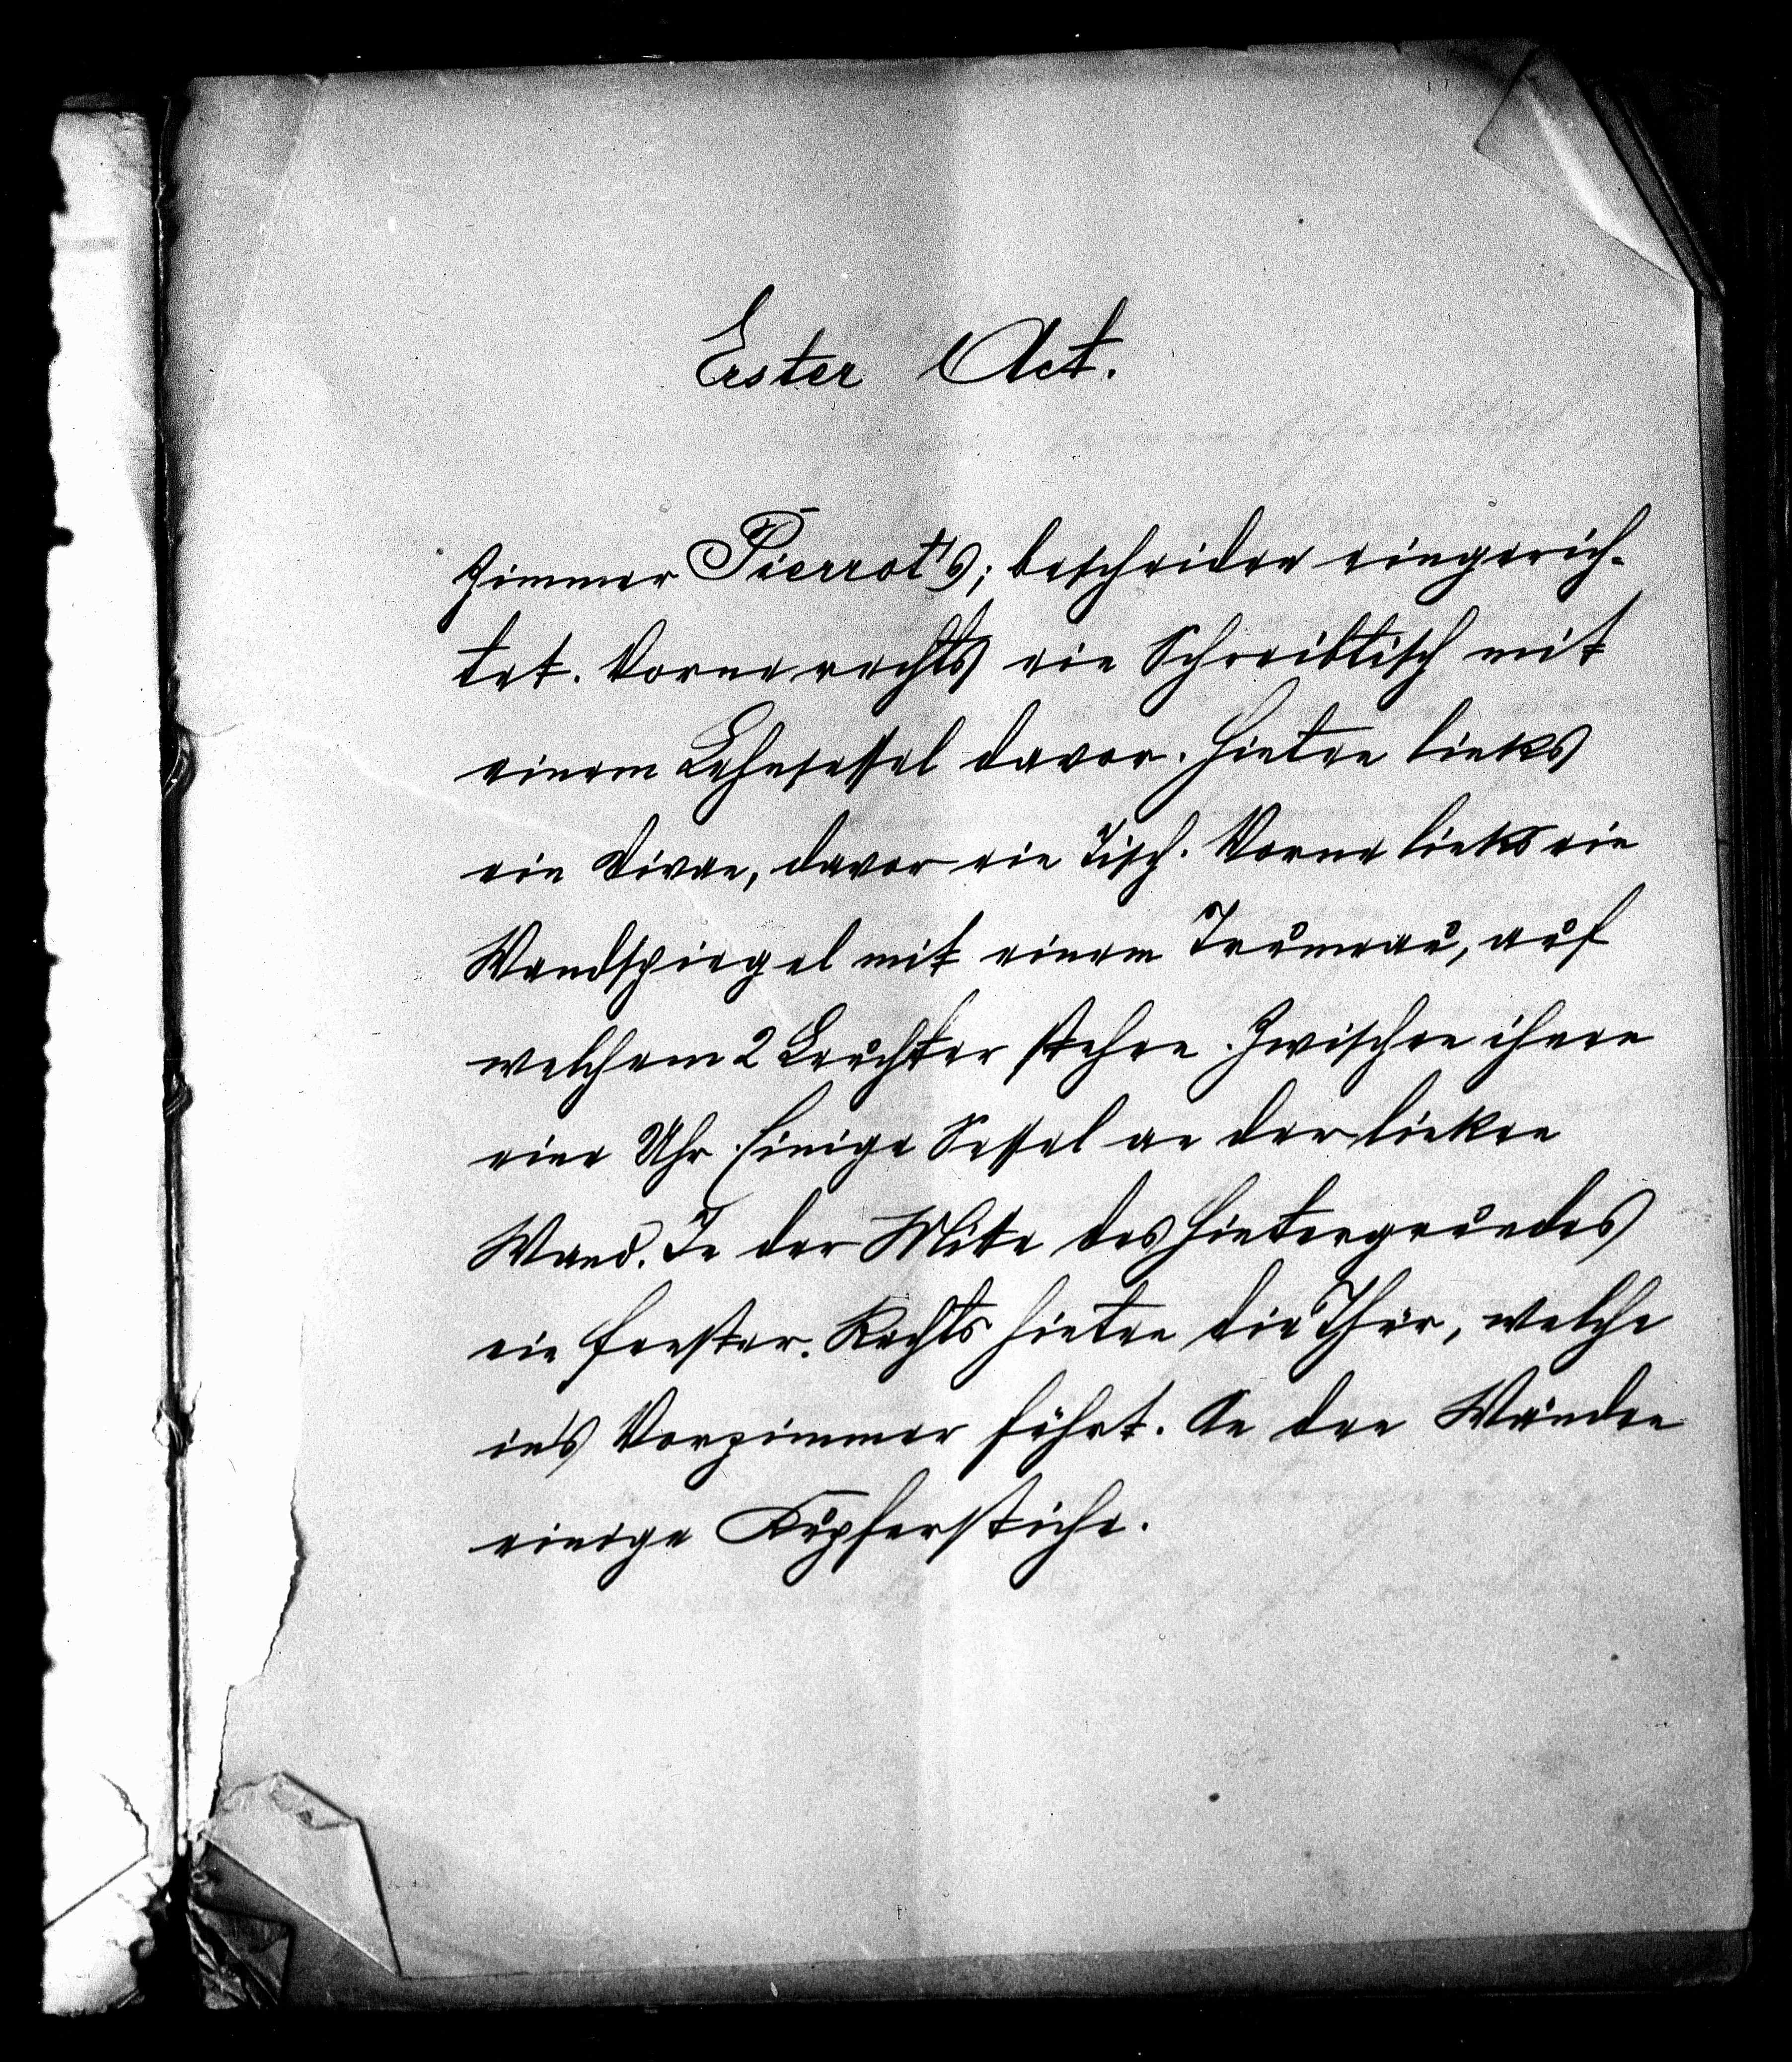 Erster Act.
Zimmer Pierrot's; bescheiden eingerich-
tet. Vorne rechts ein Schreibtisch mit
einem Lehnsessel davor. Hinten links
ein Divan, davor ein Tisch. Vorne links ein
Wandspiegel mit einem Trumeau, auf
welchem 2 Leuchter stehen. Zwischen ihnen
eine Uhr. Einige Sessel an der linken
Wand. In der Mitte des Hintergrundes
ein Fenster. Rechts hinten die Thür, welche
in's Vorzimmer führt. An den Wänden
einige Kupferstiche.